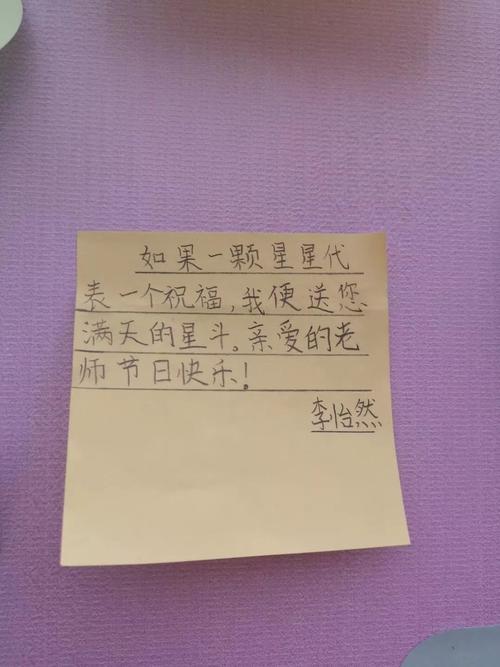 如果一颗星星代
表一个祝福,我便送您
满天的星斗。亲爱的老
师节日快乐!
李怡然